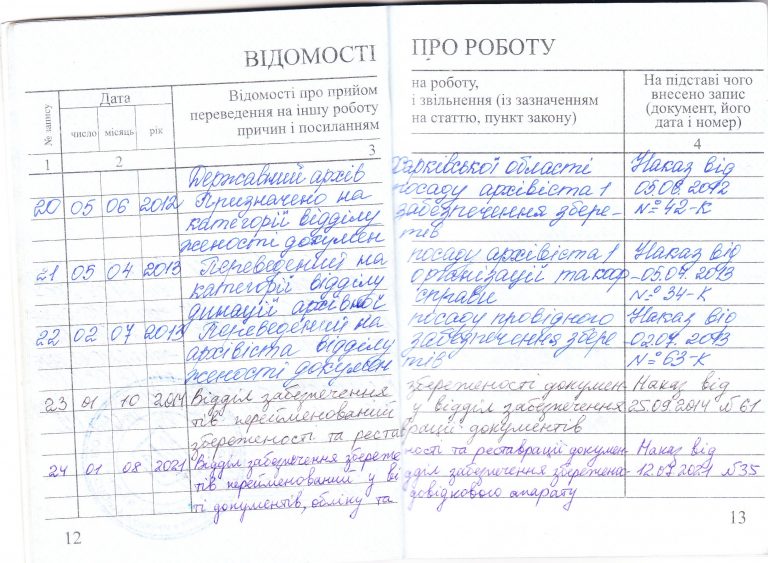 ВІДОМОСТІ ПРО РОБОТУ
№ запису
Дата
число місяць рік
Відомості про прийом на роботу,
переведення на іншу роботу і звільнення (із зазначенням
причин і посиланням на статтю, пункт закону)
На підставі чого
внесено запис
(документ, його
дата і номер)
1 2 3 4
Державний архів Харківської області Наказ від
20 05 06 2012 Призначено на посаду архівіста 1 05.06.2012
категорії відділу забезпечення збере- №42-К
женості докумен тів
21 05 04 2013 Переведений на посаду архівіста 1 Наказ від
категорії відділу організацій та коор -05.04.2013
динації архівної справи №34-К
22 02 07 2013 Переведений на посаду провідного Наказ від
архівіста відділу забезпечення збере -02.07.2013
женості докумен тів №63-К
23 01 10 2014 Відділ забезпечення збереженості докумен- Наказ від
тів перейменований у відділ забезпечення 25.09.2014 №61
збереженості та реставрації документів
24 01 08 2021 Відділ забезпечення збереже- ності та реставрації докумен- Наказ від
тів перейменований у відділ забезпечення збереженос- 12.07.2021 №35
ті документів, обліку та довідкового апарату
12
13